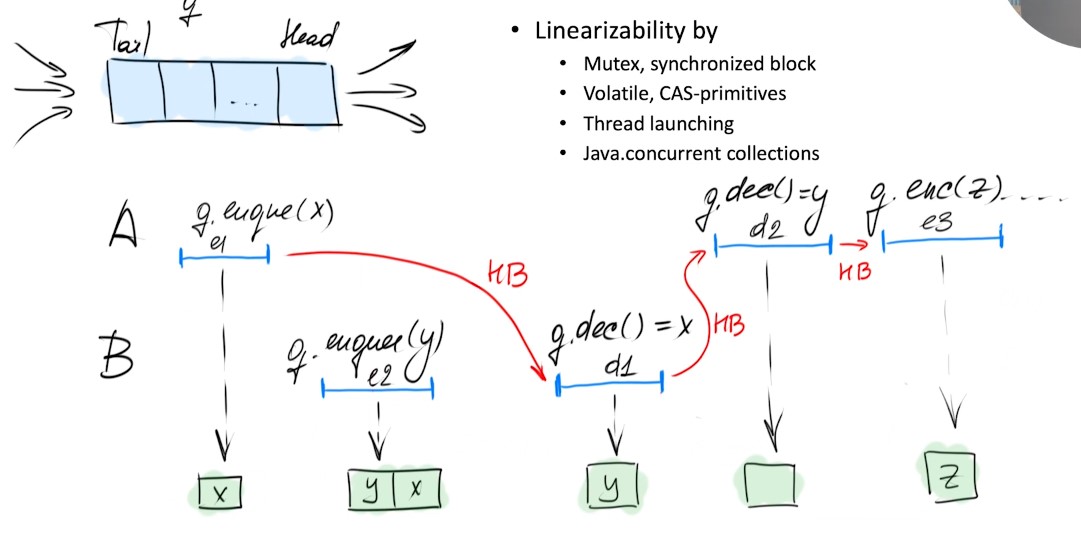 q
Tail Head
• Linearizability by
• Mutex, synchronized block
• Volatile, CAS-primitives
• Thread launching
• Java.concurrent collections
...
A
q.enque(x)
e1
HB
q.dec()=y
d2
HB
q.enc(z).....
e3
B
q.enquee(y)
e2
q.dec()=x
d1
HB
x
y x
y
z